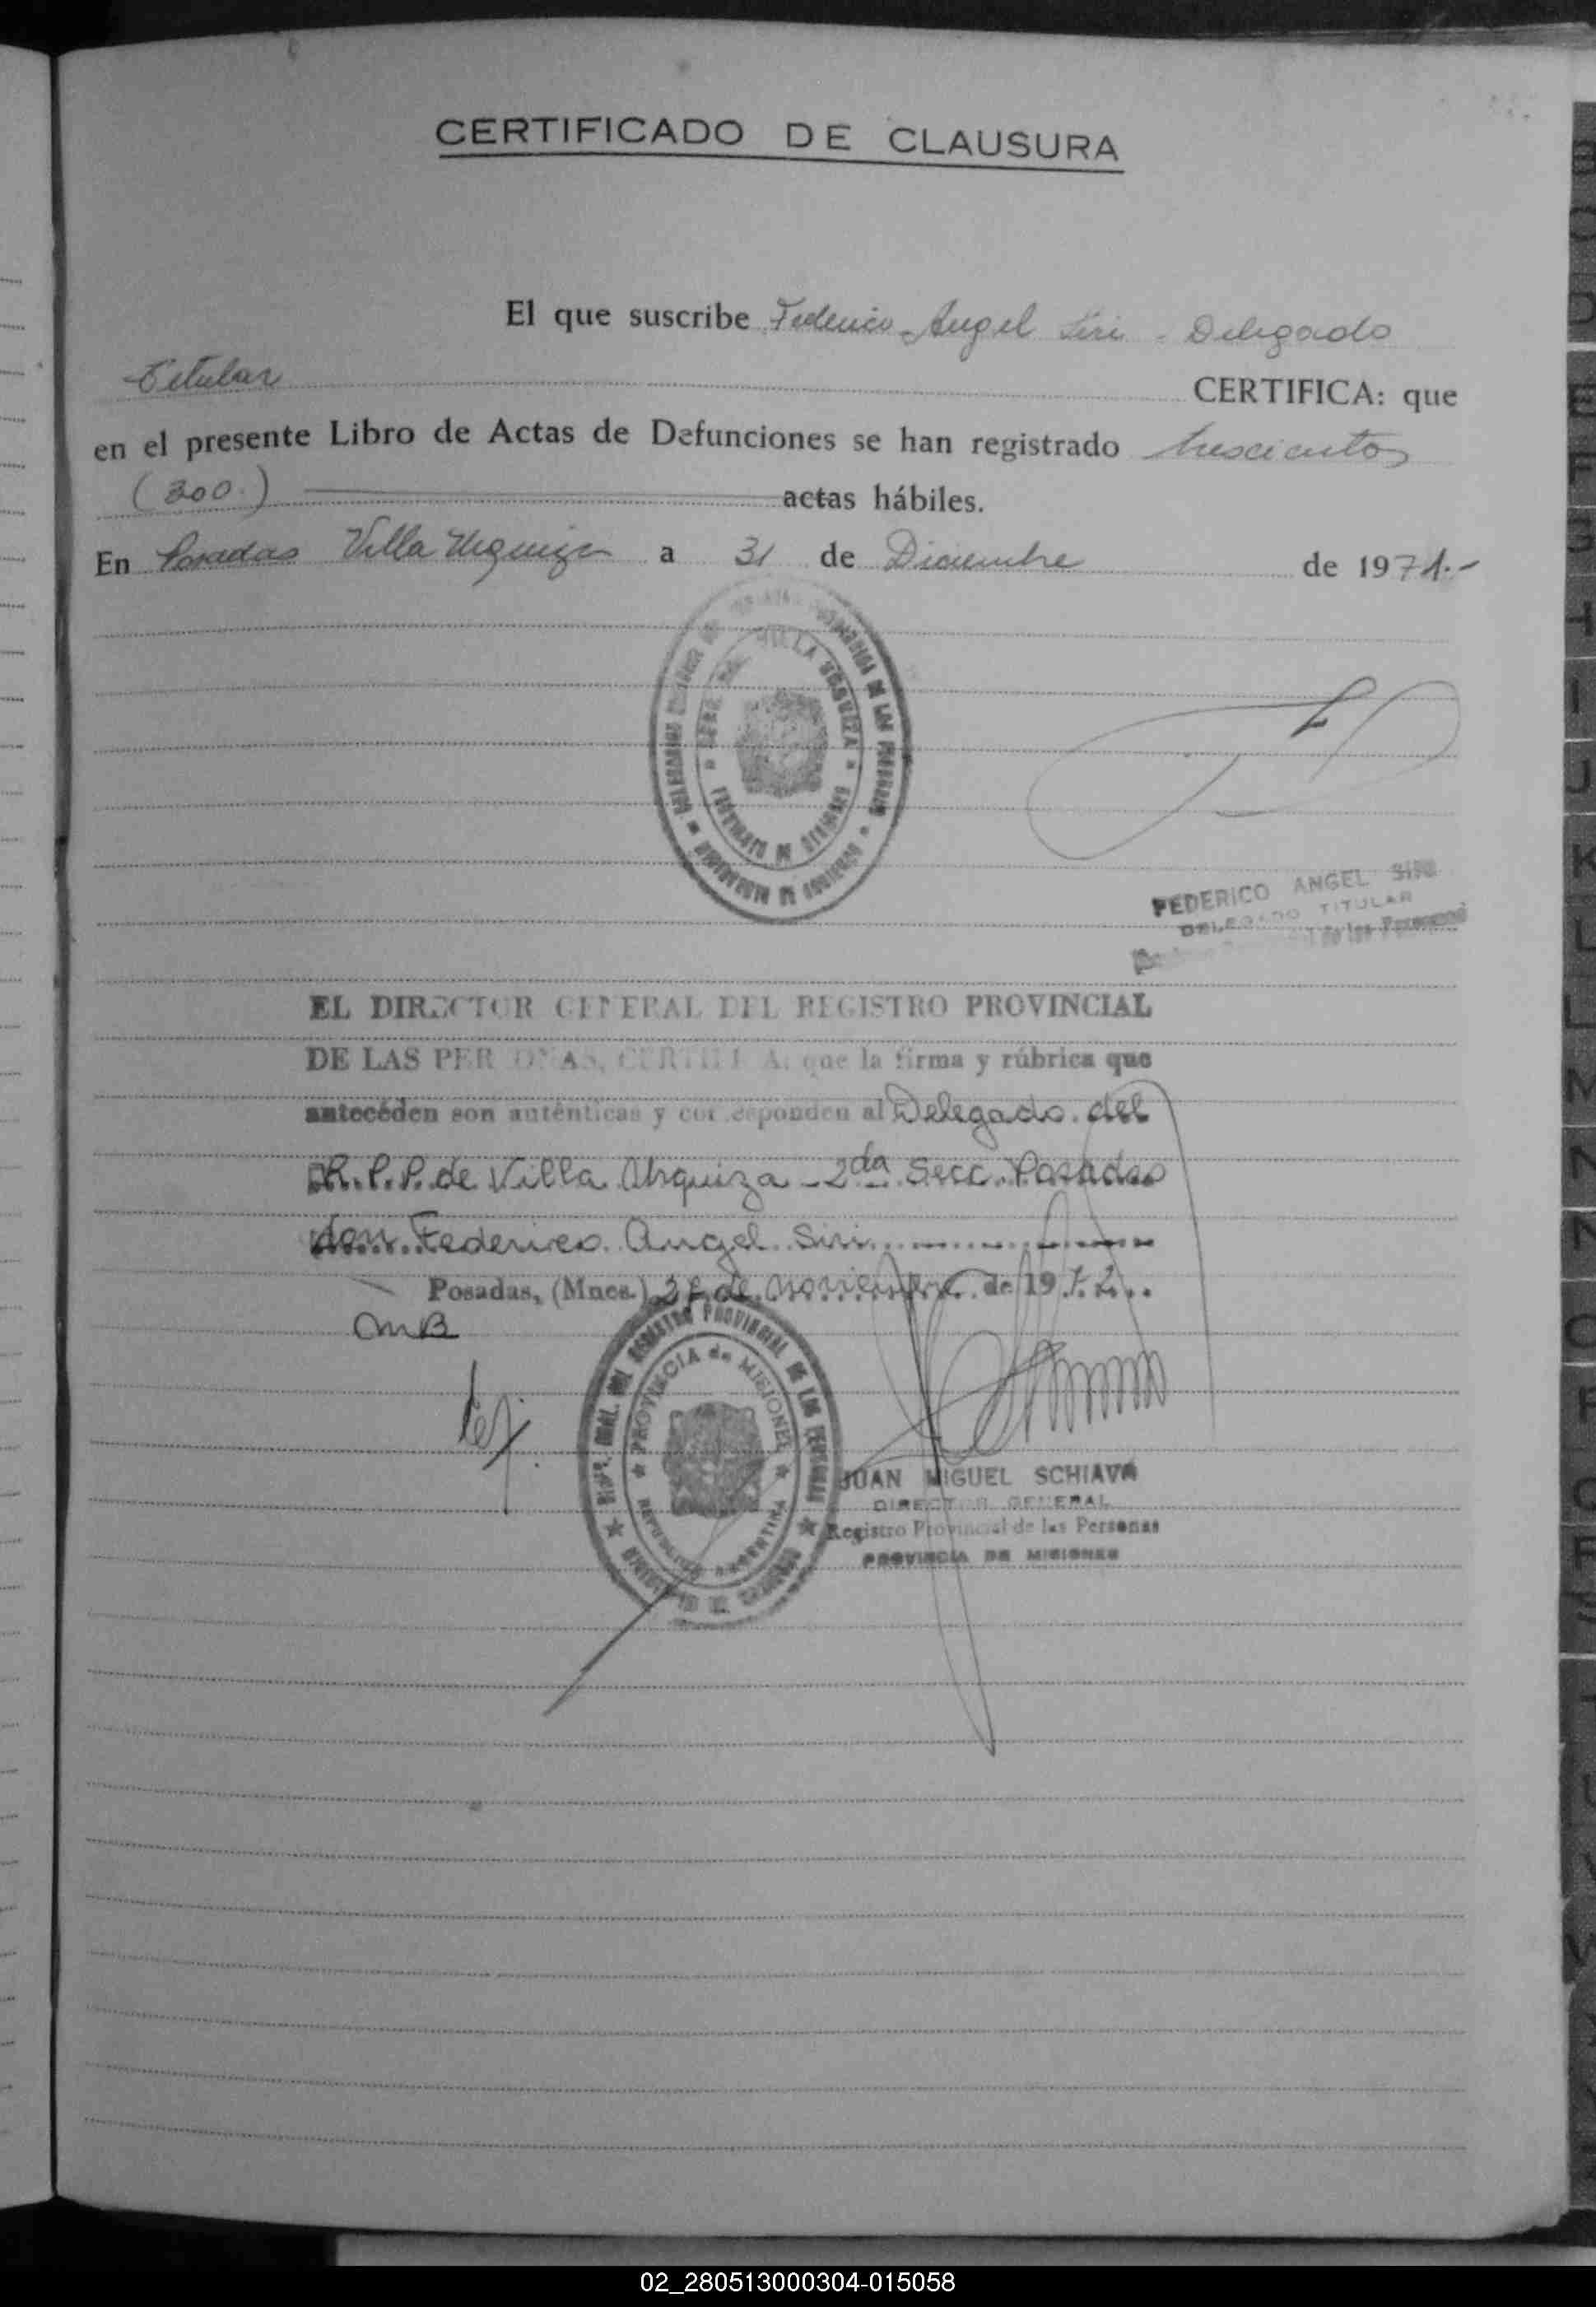 CERTIFICADO DE CLAUSURA
El que suscribe Federico Angel Siri - Delegado
Titular CERTIFICA: que
en el presente Libro de Actas de Defunciones se han registrado trescientos
(300.) actas hábiles.
En Posadas Villa Urquiza a 31 de Diciembre de 1971.-
VILLA URQUIZA
FEDERICO ANGEL SIRI
DELEGADO TITULAR
de las Personas
EL DIRECTOR GENERAL DEL REGISTRO PROVINCIAL
DE LAS PERSONAS, CERTIFICA: que la firma y rúbrica que
anteceden son auténticas y corresponden al Delegado del
R.P.P. de Villa Urquiza - 2da Secc. Posadas
don Federico Angel Siri
Posadas, (Mnes.) de noviembre de 1972
OMB
REGISTRO PROVINCIAL DE LAS PERSONAS
PROVINCIA de MISIONES
REPUBLICA ARGENTINA
JUAN MIGUEL SCHIAVA
DIRECTOR GENERAL
Registro Provincial de las Personas
PROVINCIA DE MISIONES
02_280513000304-015058